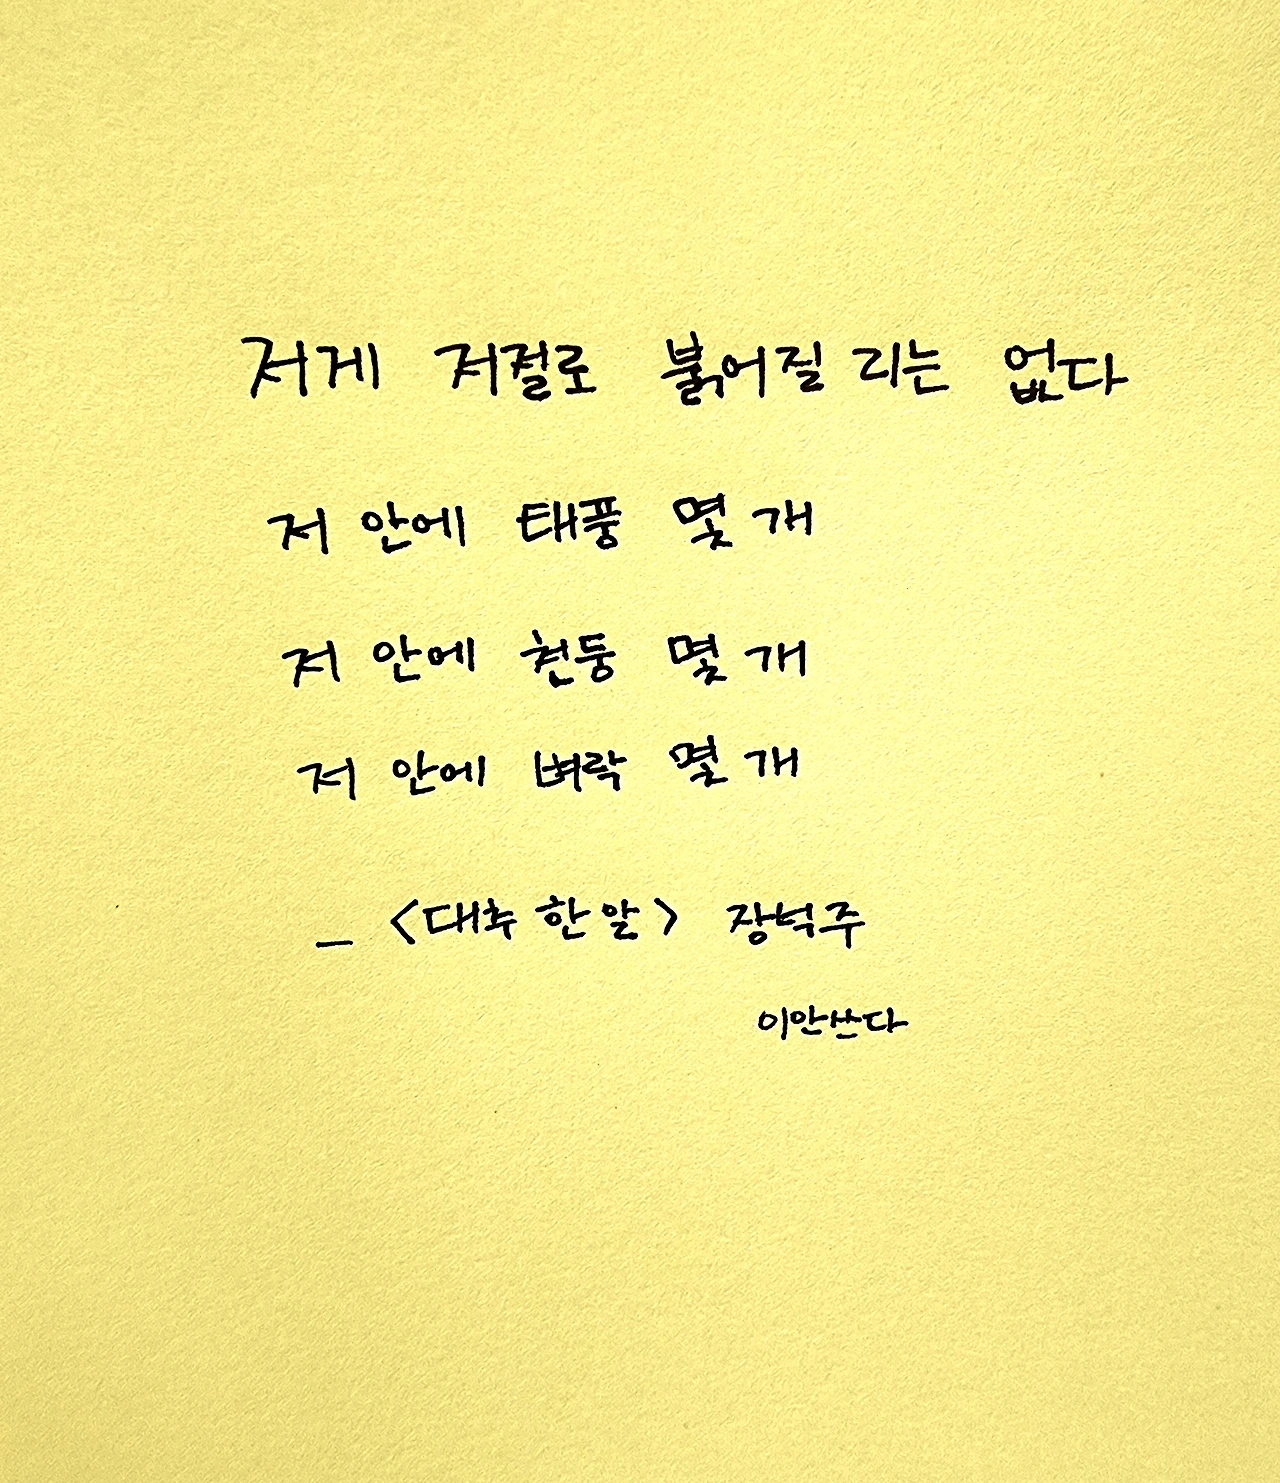 저게 저절로 붉어질 리는 없다
저 안에 태풍 몇 개
저 안에 천둥 몇 개
저 안에 벼락 몇 개
_ <대추 한 알> 장석주
이안쓰다